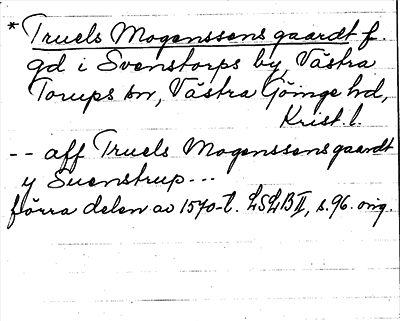 * Truels Mogenssens gaardt f.
gd i Svenstorps by, Västra
Torups sn, Västra Göinge hd,
Krist. l.
-- aff Truels Mogenssens gaardt
y Suenstrup...
förra delen av 1570-t. LSLB II, s. 96. orig.